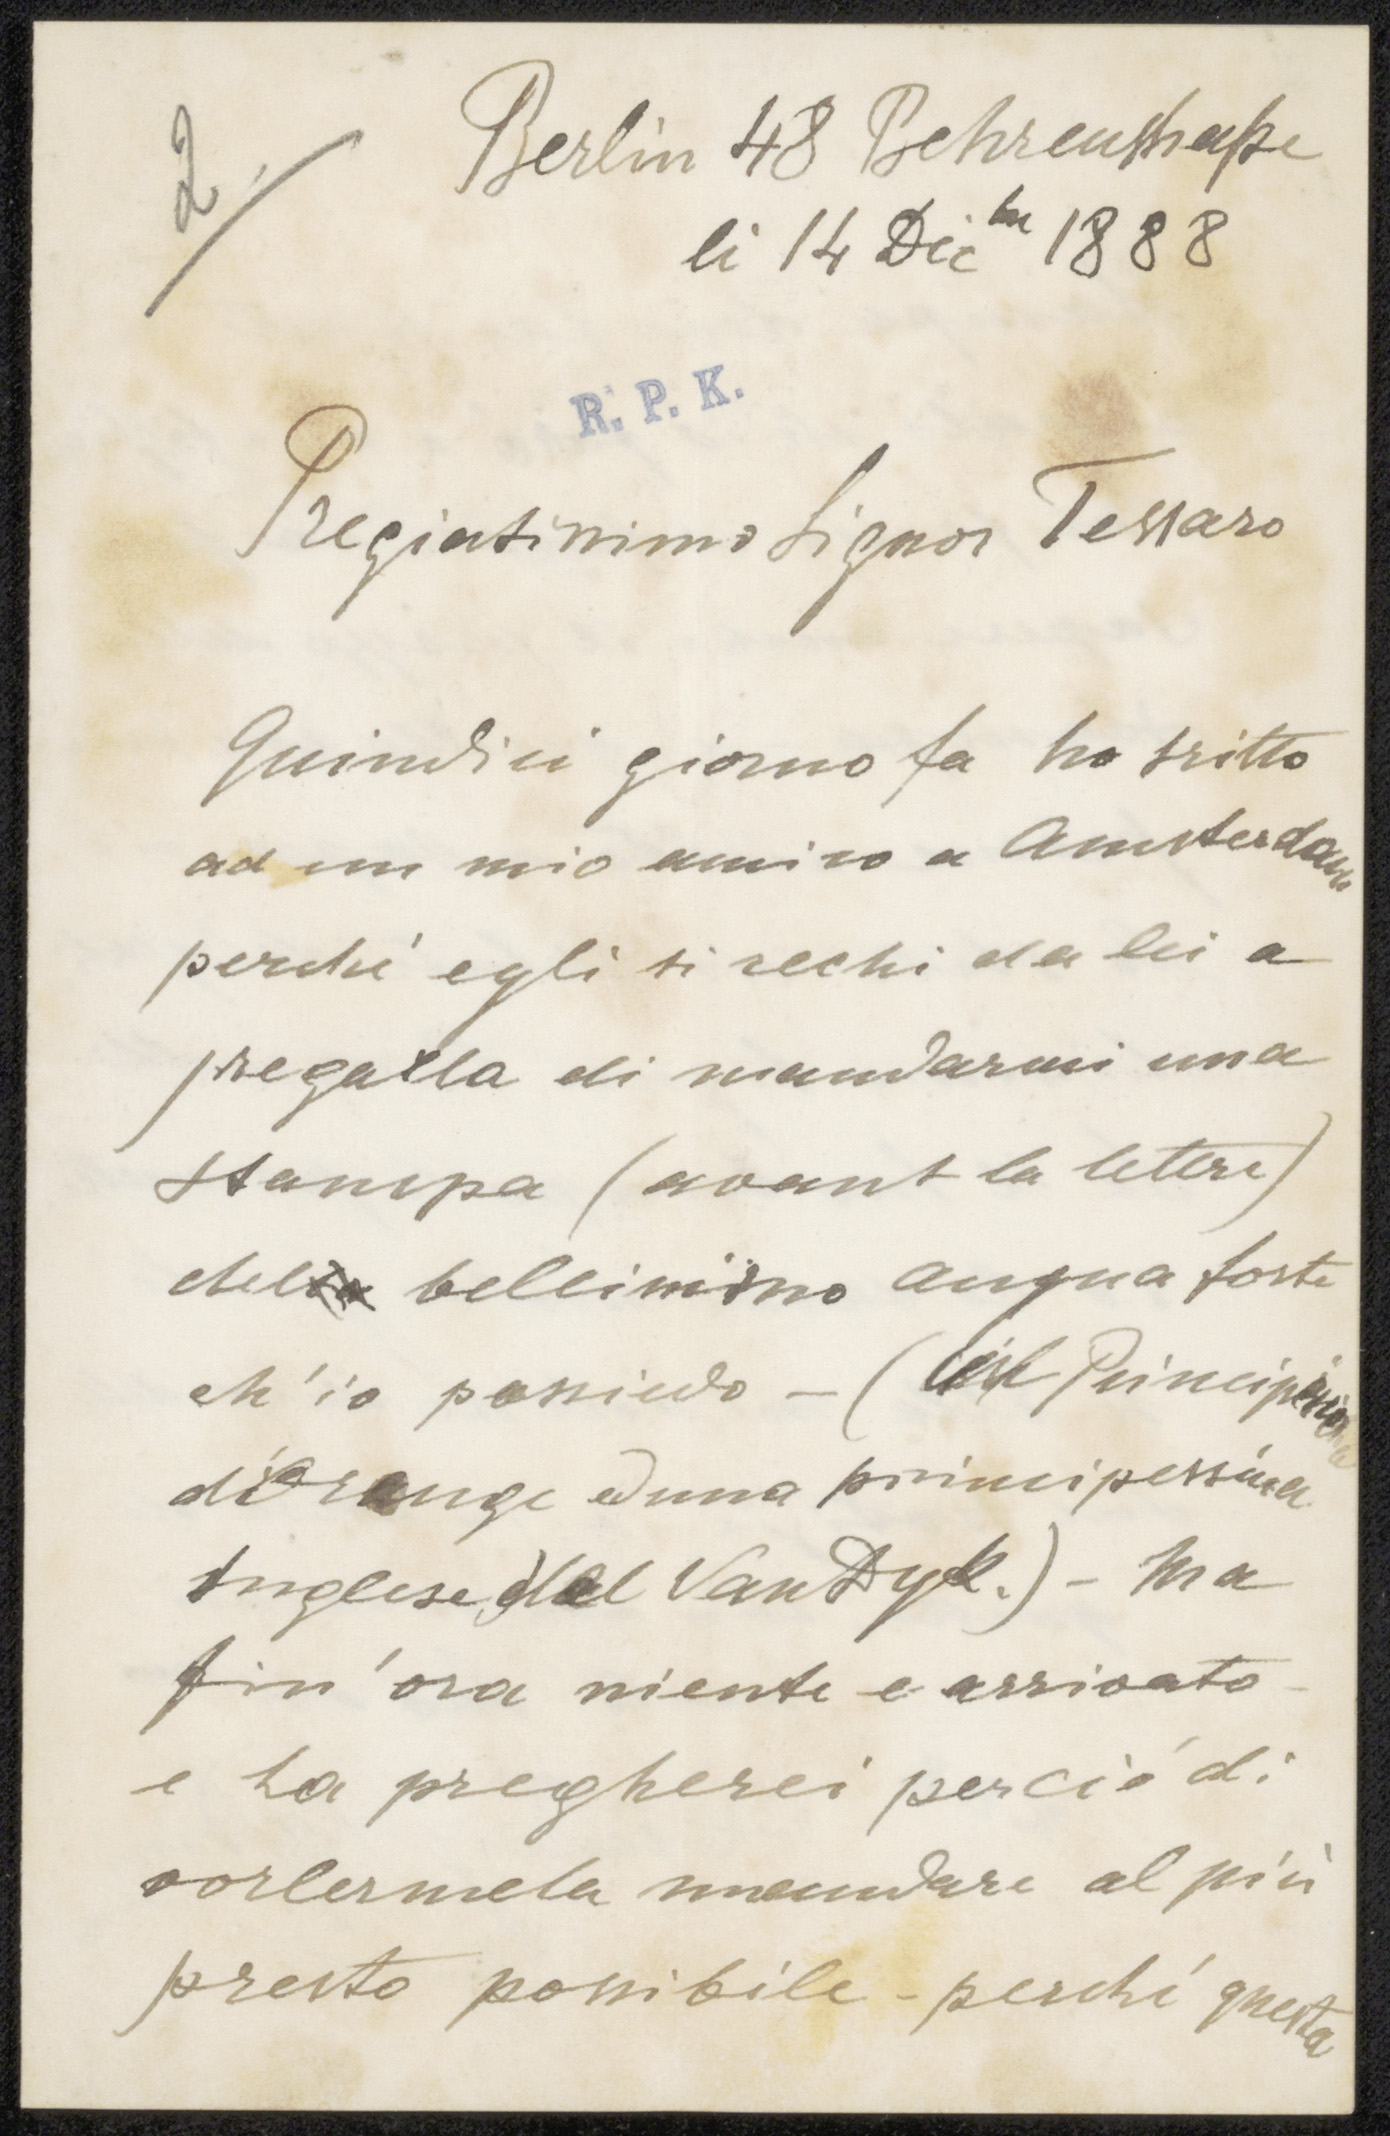 2.
Berlin 48 Behrenstraße
li 14 Dicbre 1888
R. P. K.
Pregiatissimo Signor Tessaro
Quindici giorno fa ho sritto
ad un mio amico a Amsterdam
perché egli si rechi da lei a
pregarla di mandarmi una
stampa (avant la lettere)
del bellissimo acqua forte
ch'io possiedo – ( Principessina
d'Orange ed una principessina
Inglese, del Van Dyck.) – Ma
fin'ora niente e arrivato –
e La pregherei perciò di
vorlermela mandare al più
presto possibile – perché questa